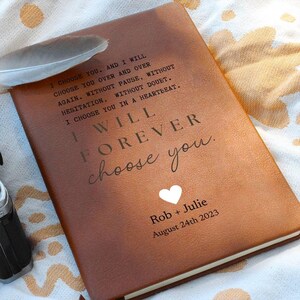 I CHOOSE YOU. AND I WILL
CHOOSE YOU OVER AND OVER
AGAIN. WITHOUT PAUSE. WITHOUT
HESITATION. WITHOUT DOUBT.
I CHOOSE YOU IN A HEARTBEAT.
I WILL
FOREVER
choose you.
Rob + Julie
August 24th 2023